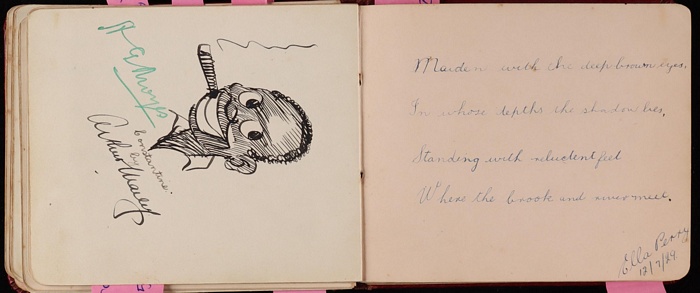 Constantine
by
Arthur Mailey
Maiden with the deep brown eyes,
In whose depths the shadow lies,
Standing with reluctent feet
Where the brook and river meet.
Ella Perry
12/7/29